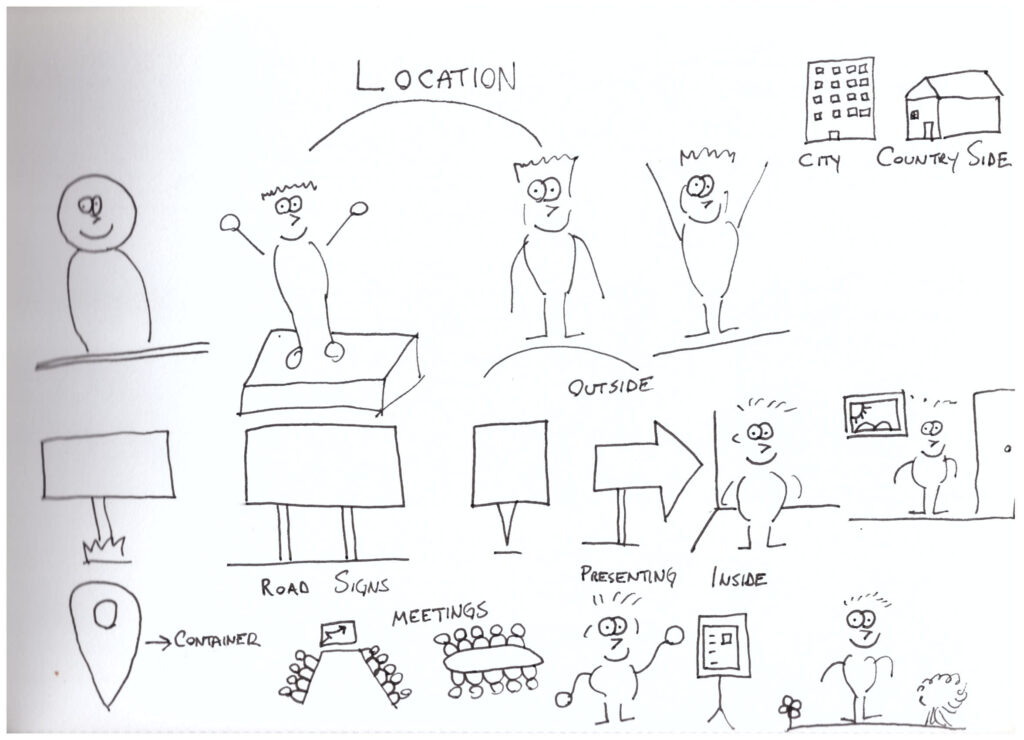 LOCATION
CITY
COUNTRY SIDE
OUTSIDE
ROAD SIGNS
PRESENTING
INSIDE
MEETINGS
CONTAINER